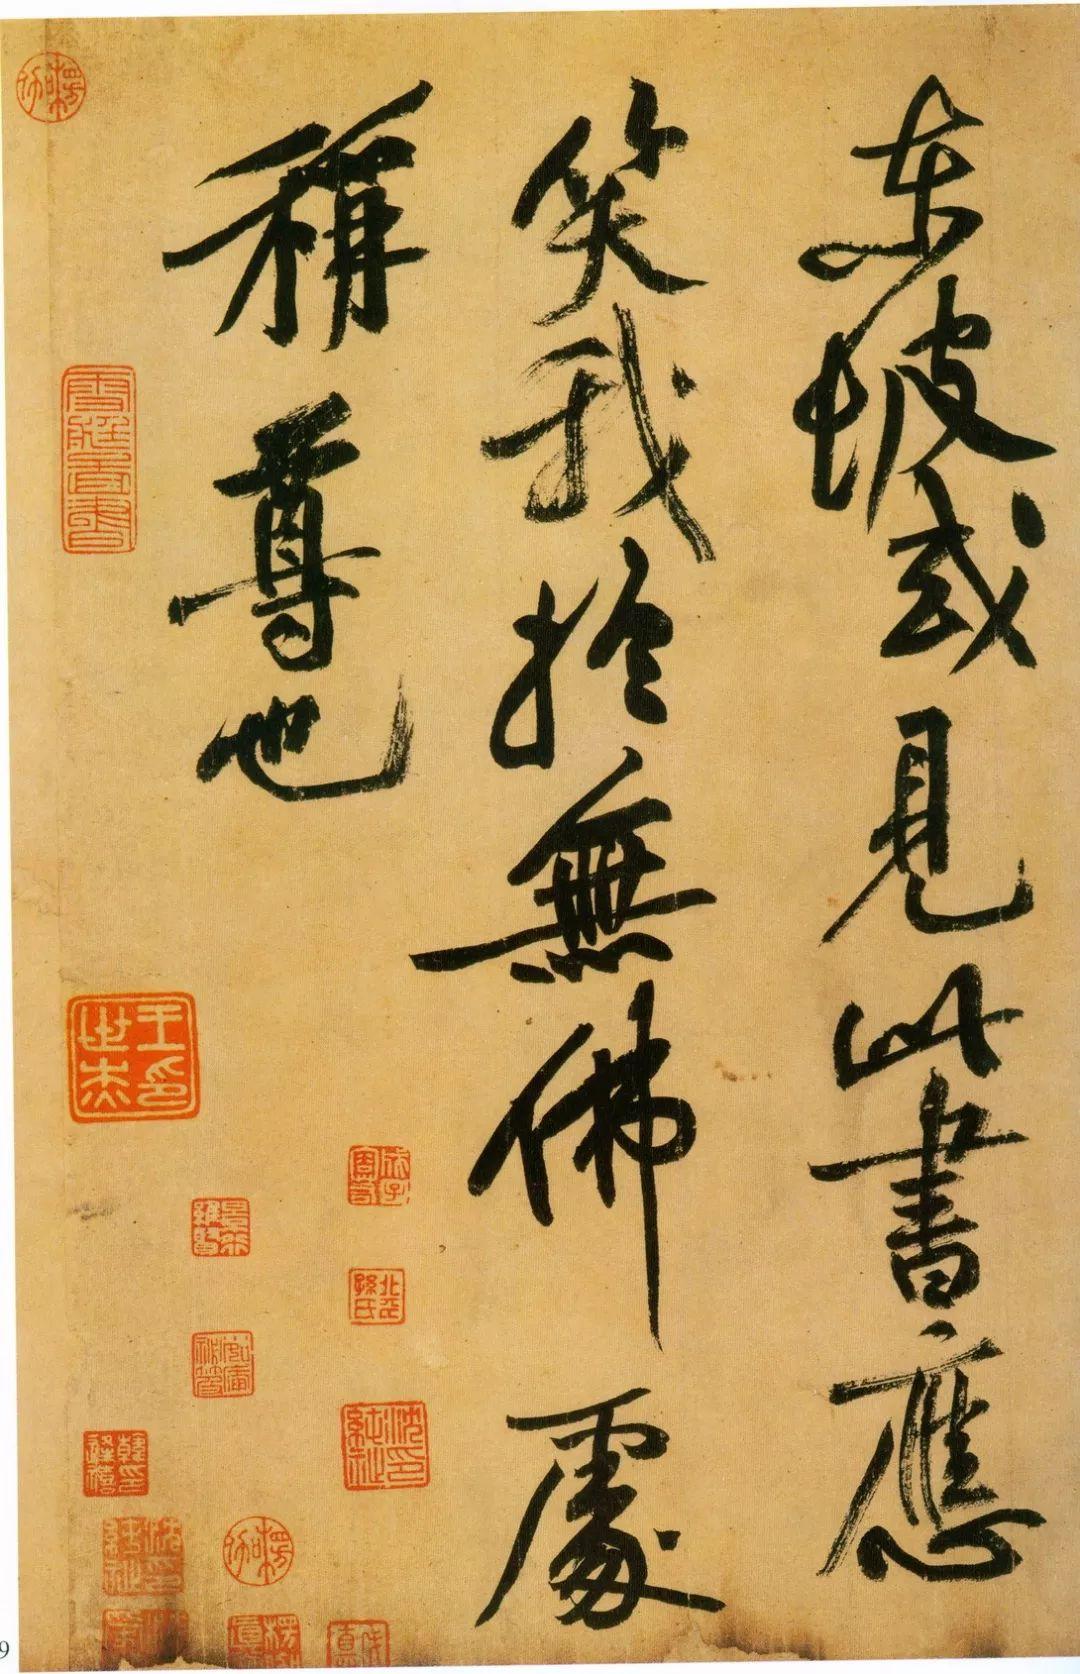 東坡或見此書應
笑我於無佛處
稱尊也
王印
世杰
9